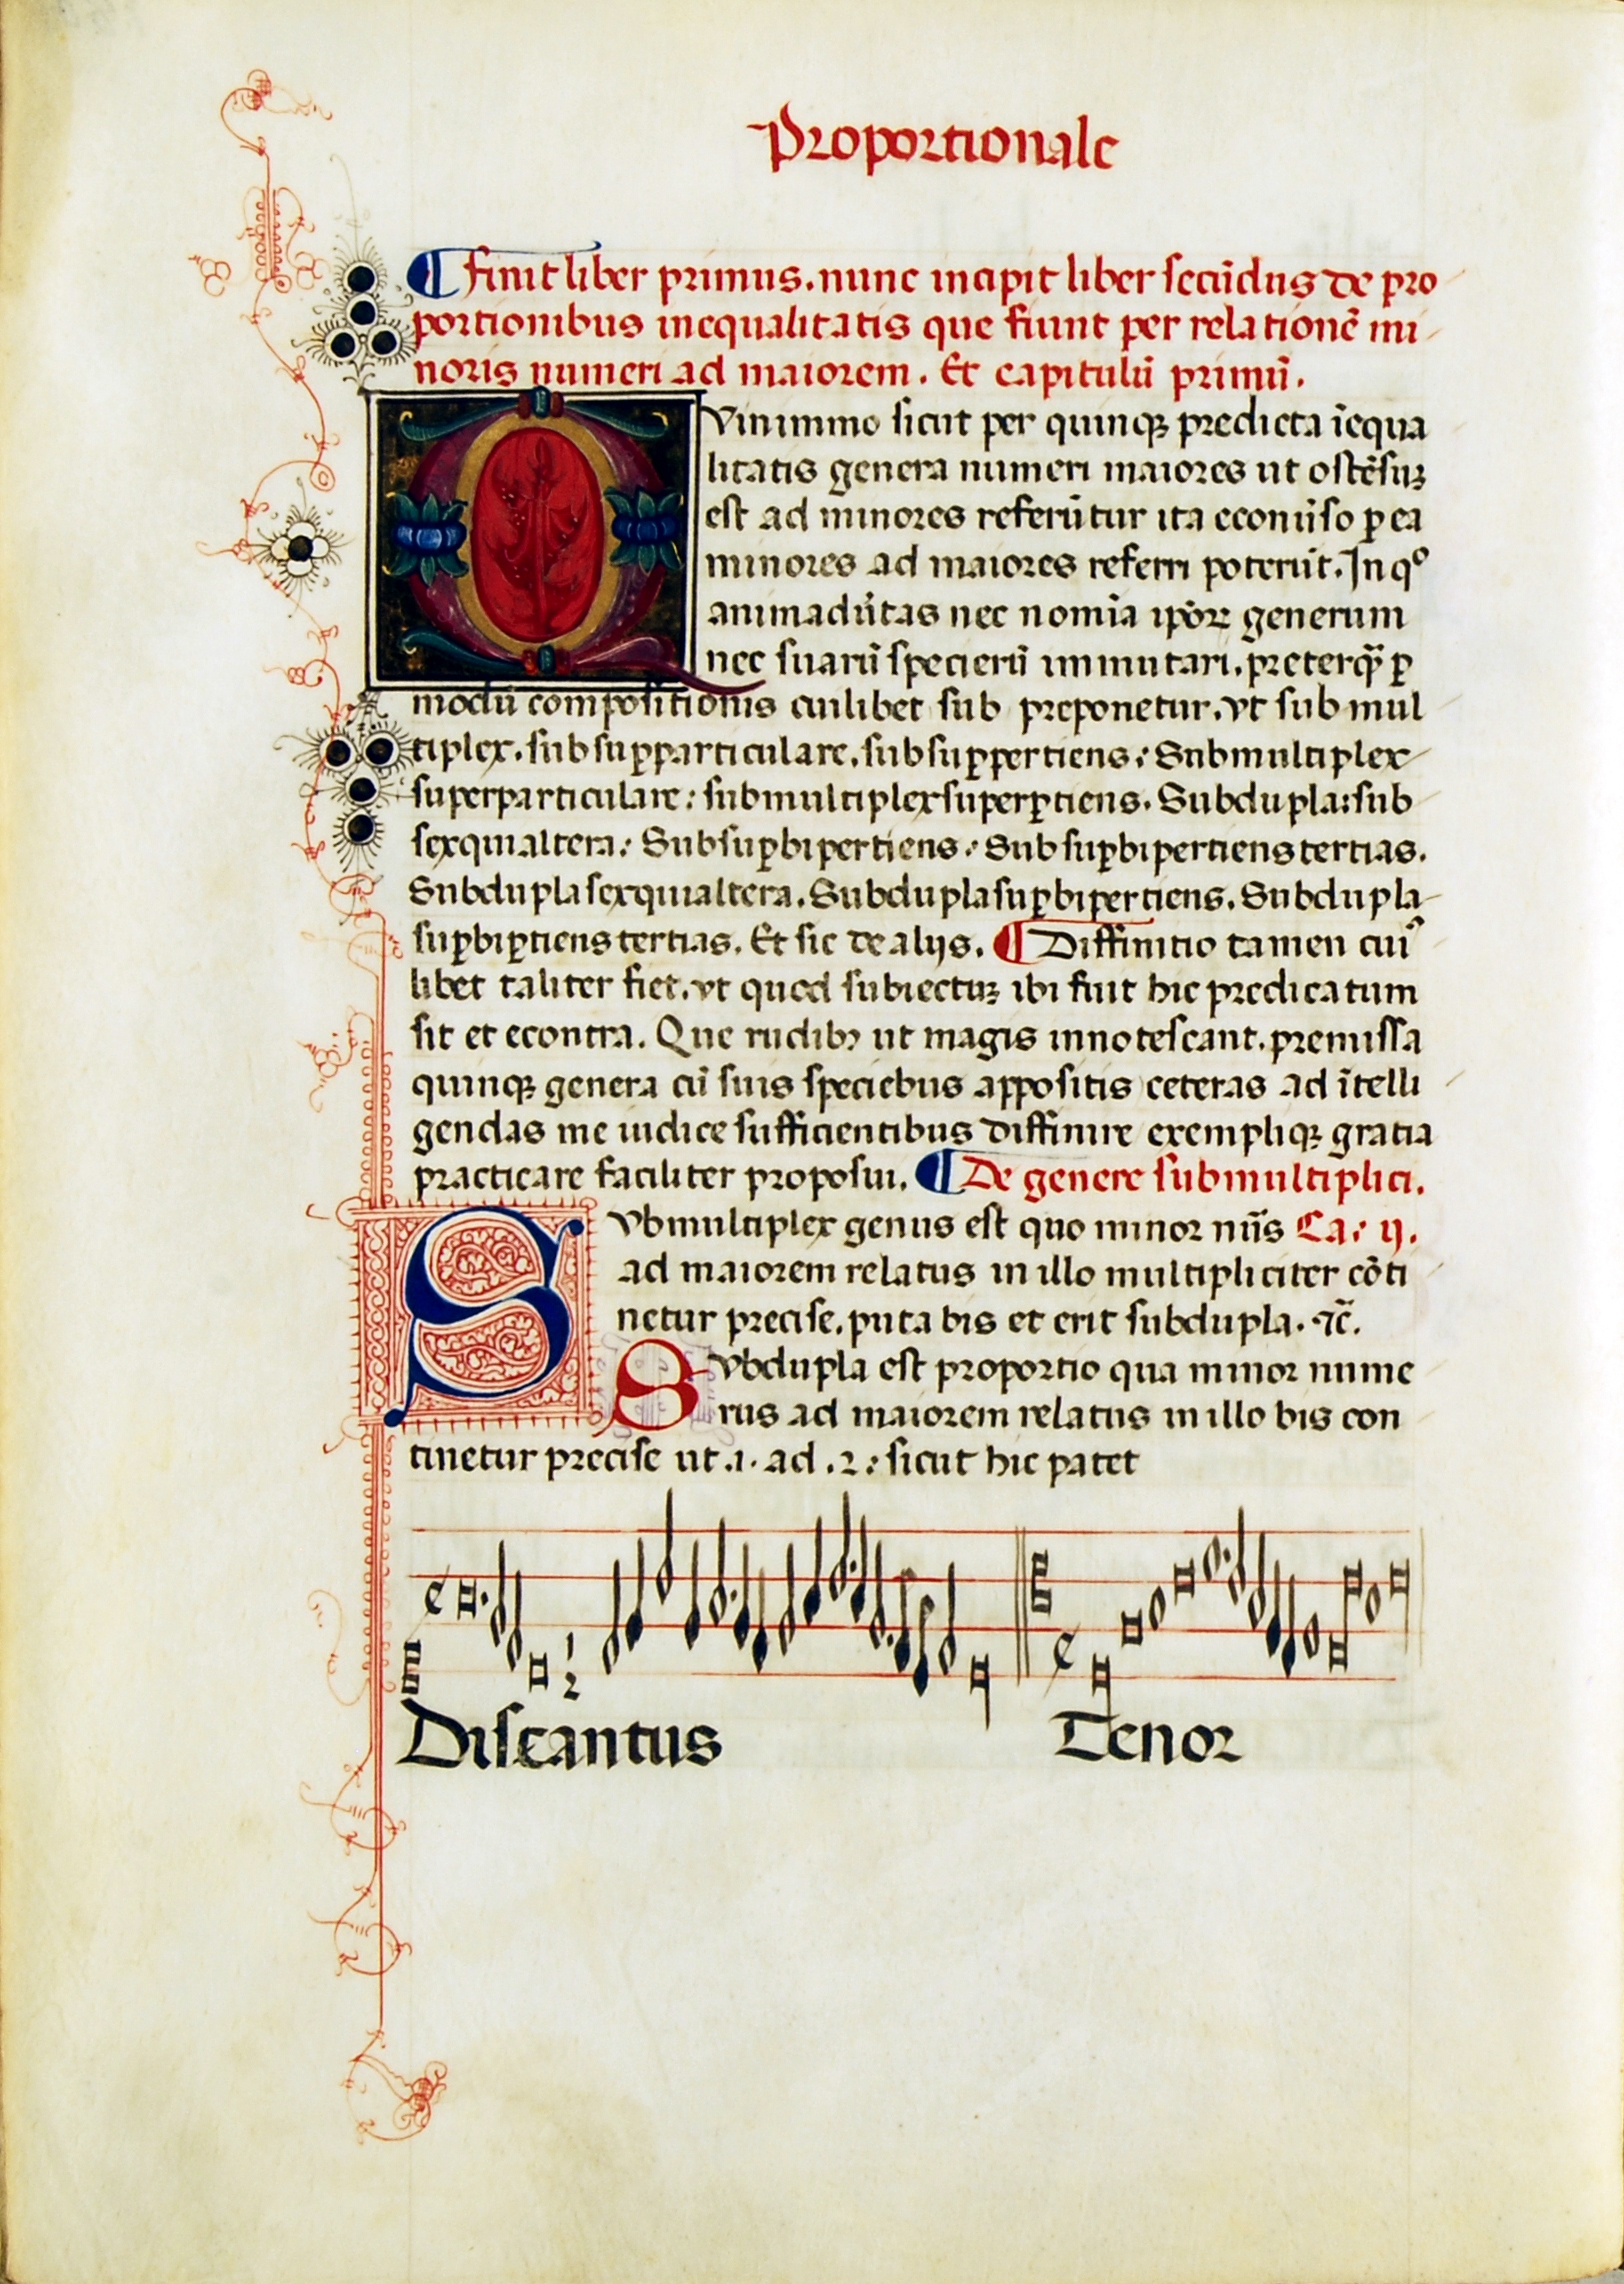 Proportionale
¶ Finit liber primus. nunc incipit liber secũdus de pro
portionibus inequalitatis que fiunt per relationẽ mi
noris numeri ad maiorem. Et capitulũ primũ.
QVinimmo sicut per quinqꝫ predicta ĩequa
litatis genera numeri maiores ut ostẽsuꝫ
est ad minores referũtur ita econũso ꝑ ea
minores ad maiores referri poterũt. In qᵒ
animadũtas nec nomĩa ip̃oꝝ generum
nec suarũ specierũ immutari. preterq̃ ꝑ
modũ compositionis cuilibet sub preponetur. vt sub mul
tiplex. sub suꝑparticulare. sub suꝑpertiens: Submultiplex
superparticulare: submultiplexsuperꝑtiens. Subdupla: sub
sexquialtera: Subsuꝑbipertiens: Subsuꝑbipertienstertias.
Subduplasexquialtera. Subduplasuꝑbipertiens. Subdupla
suꝑbiꝑtienstertias. Et sic de alijs. ¶ Diffinitio tamen cuiꝰ
libet taliter fiet. vt quod subiectuꝫ ibi fuit hic predicatum
sit et econtra. Que rudibꝫ ut magis innotescant. premissa
quinqꝫ genera cũ suis speciebus appositis ceteras ad ĩtelli
gendas me iudice sufficientibus diffinire exempliqꝫ gratia
practicare faciliter proposui. ¶ De genere submultiplici.
SVbmultiplex genus est quo minor nũs Ca: ij.
ad maiorem relatus in illo multipliciter cõti
netur precise. puta bis et erit subdupla. ⁊c̃.
SVbdupla est proportio qua minor nume
rus ad maiorem relatus in illo bis con
tinetur precise ut .1. ad .2: sicut hic patet
1
2
Discantus Tenor